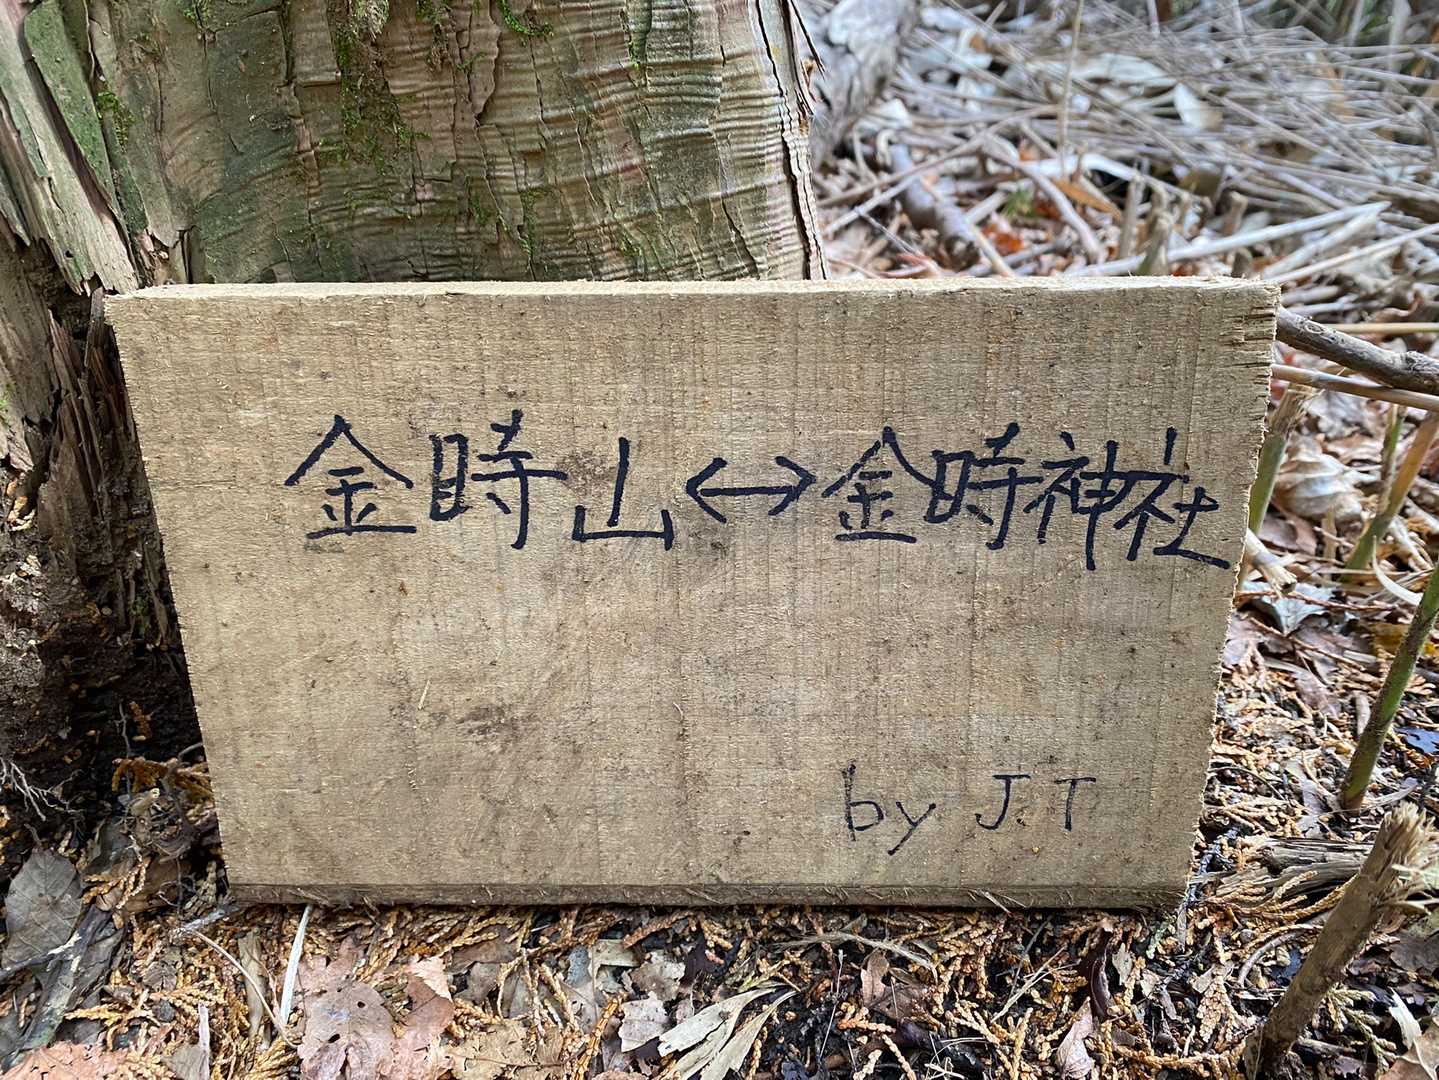 金時山↔金時神社
by J.T